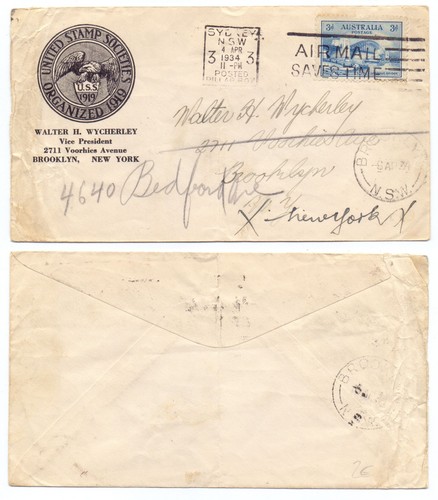 UNITED STAMP SOCIETIES
U.S.S.
1919
ORGANIZED 1919
WALTER H. WYCHERLEY
Vice President
2711 Voorhies Avenue
BROOKLYN, NEW YORK
SYDNEY
N.S.W
3 4 APR 3
1934
11-PM
POSTED
AIR MAIL
SAVES TIME
3D AUSTRALIA 3D
POSTAGE
Walter H. Wycherley
2711 Voorhies Ave
Brooklyn
4640 Bedford Ave
X New York X
N.S.W.